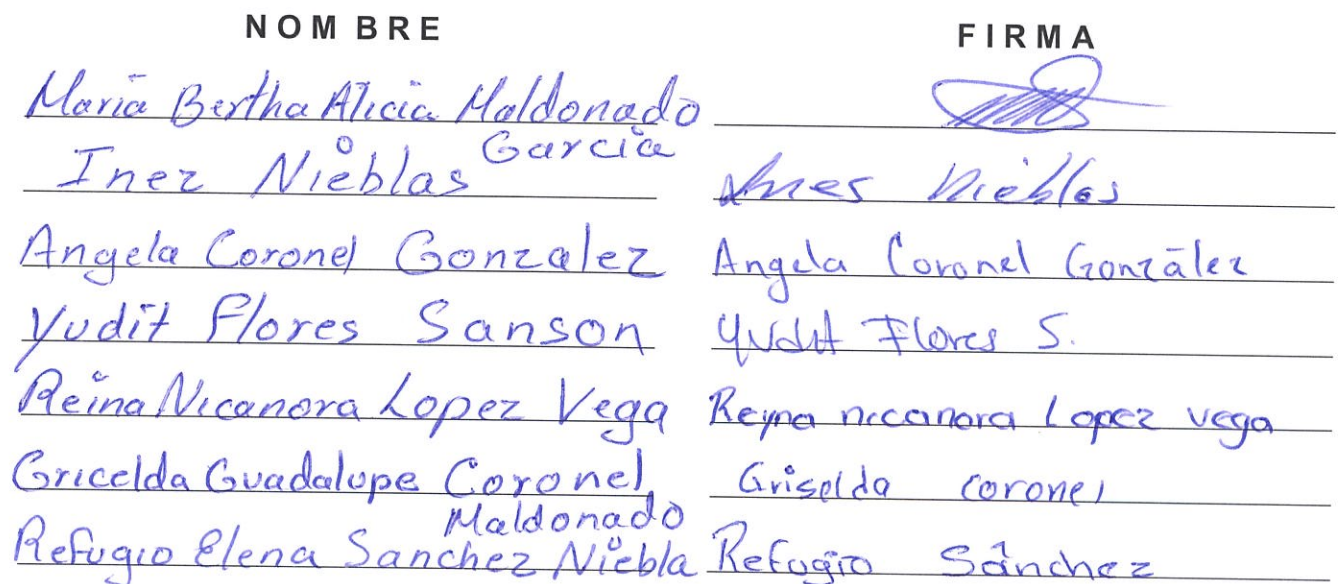 NOMBRE FIRMA
Maria Bertha Alicia Maldonado
Garcia
Inez Nieblas Ines Nieblas
Angela Coronel Gonzalez Angela Coronel González
Yudit Flores Sanson Yudit Flores S.
Reina Nicanora Lopez Vega Reyna nicanora Lopez vega
Gricelda Guadalupe Coronel Griselda coronel
Maldonado
Refugio Elena Sanchez Niebla Refugio Sánchez